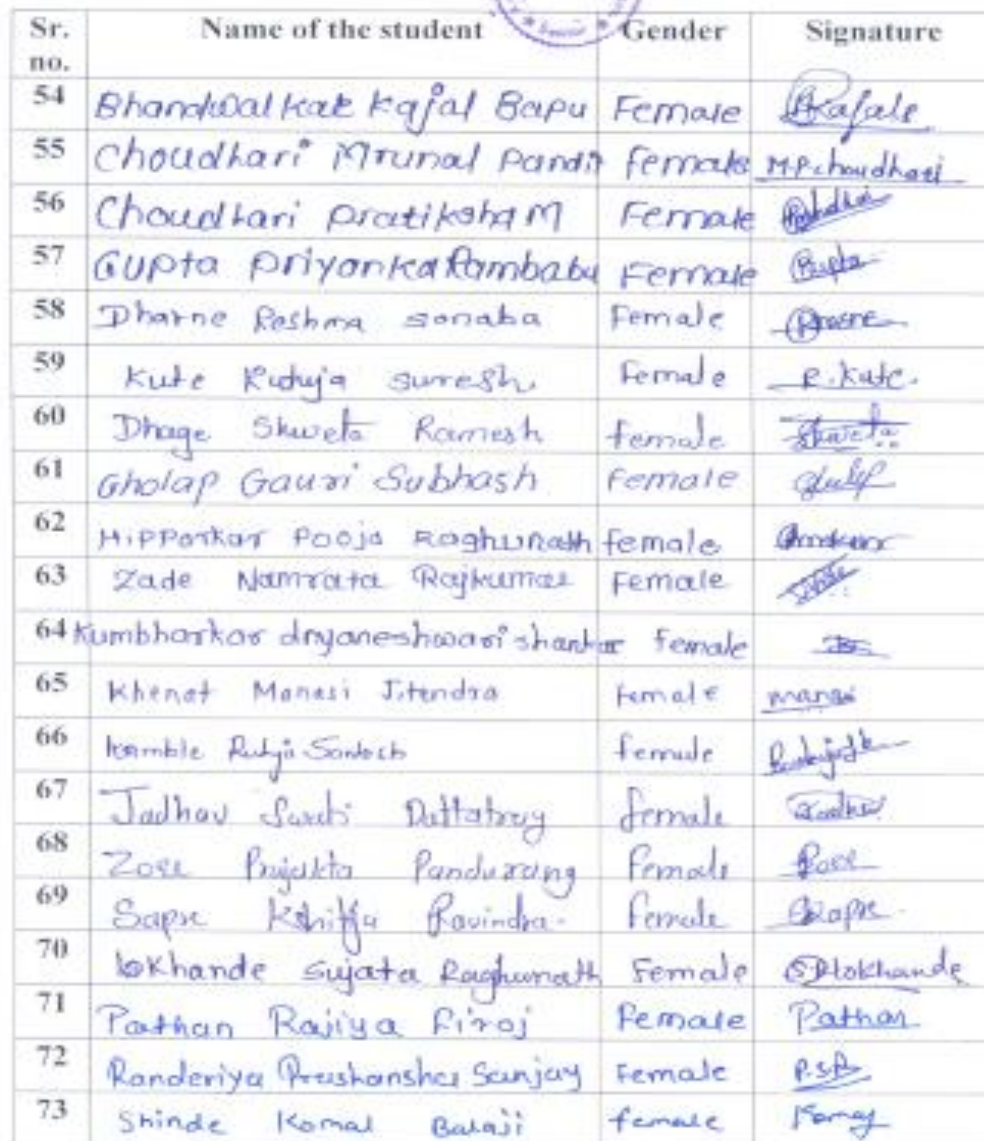 Sr. no. Name of the student Gender Signature
54 Bhandwalkar Kajal Bapu Female
55 Choudhari Mrunal Pandit female M.P.choudhari
56 Choudhari pratiksha M Female
57 Gupta priyanka Rambabu Female Gupta
58 Dharne Reshma sonaba Female
59 Kute Rutuja suresh. Female R.Kute.
60 Dhage Shweta Ramesh female Shweta
61 Gholap Gauri Subhash Female
62 Hipparkar Pooja Raghunath female
63 Zade Namrata Rajkumar Female
64 Kumbharkar dnyaneshwari shankar female
65 Khenat Manasi Jitendra female manasi
66 Kamble Rutuja Santosh female
67 Jadhav Swati Dattatray female
68 Zore Prajakta Pandurang female
69 Sapre Kshitija Ravindra. female
70 lokhande Sujata Raghunath Female SRlokhande
71 Pathan Rajiya Firoj female Pathan
72 Randeriya Prashansha Sanjay Female P.S.R.
73 Shinde Komal Balaji female Komal